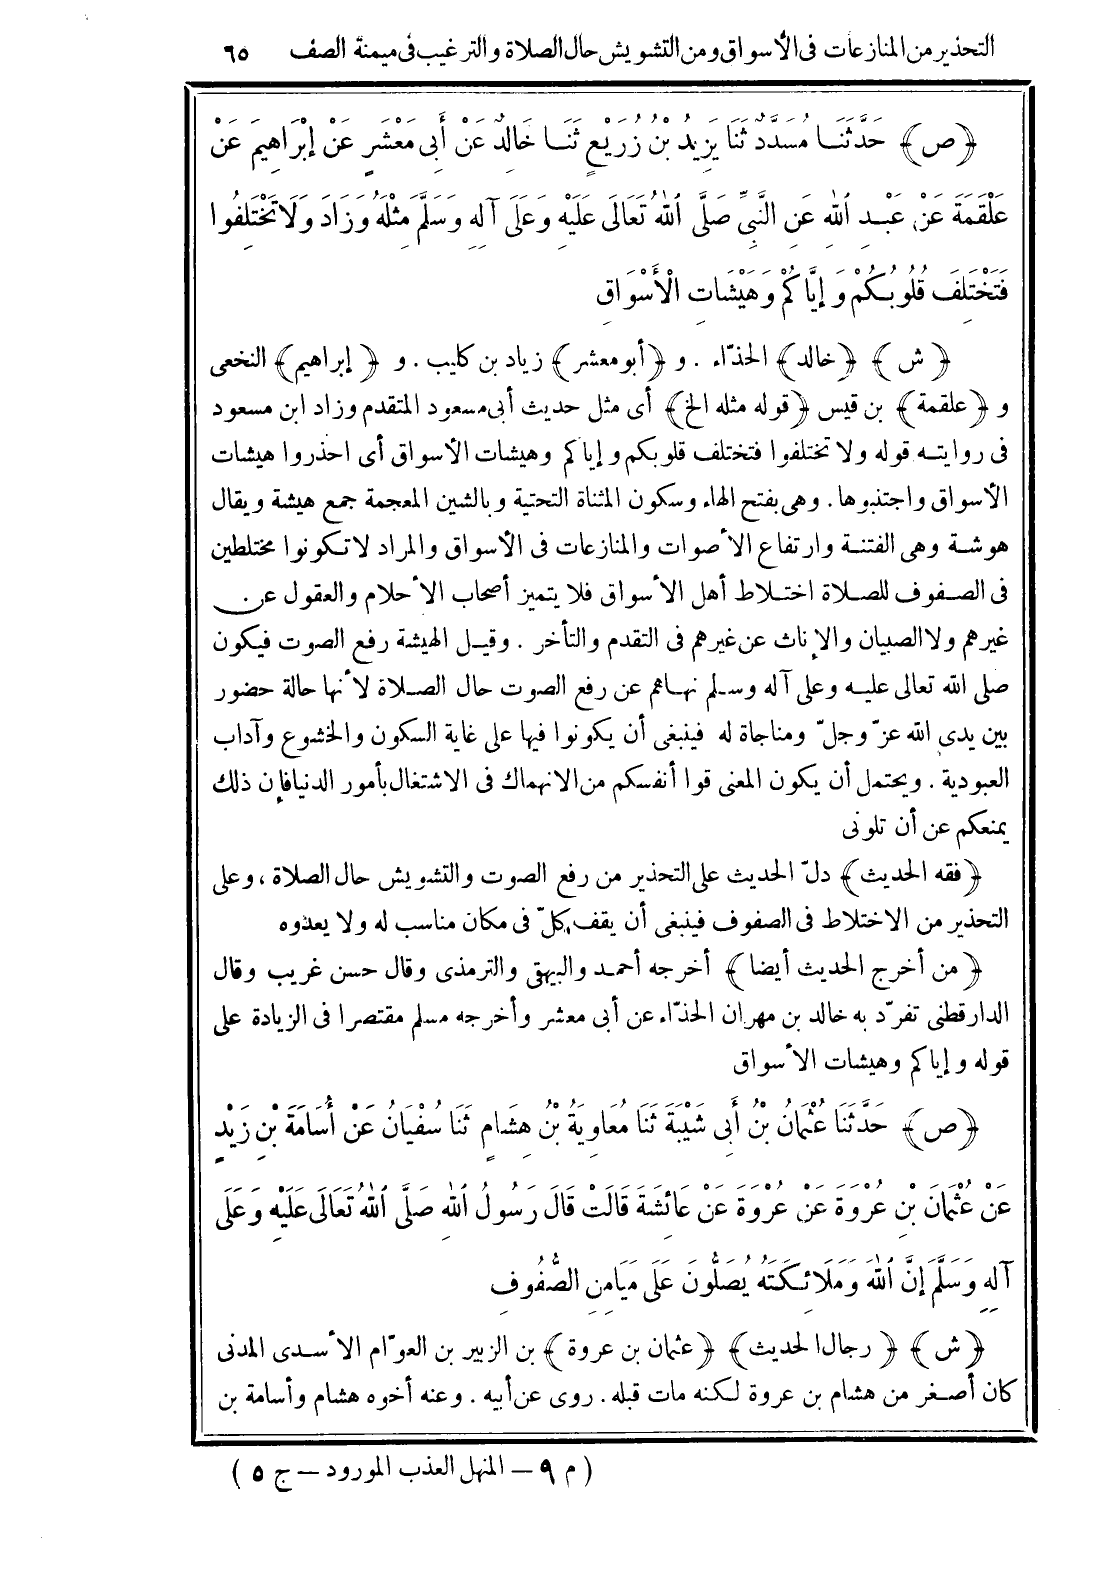 التحذير من المنازعات فى الأسواق ومن التشويش حال الصلاة والترغيب فى ميمنة الصف ٦٥
﴿ص﴾ حَدَّثَنَا مُسَدَّدٌ ثَنَا يَزِيدُ بْنُ زُرَيْعٍ ثَنَا خَالِدٌ عَنْ أَبِى مَعْشَرٍ عَنْ إِبْرَاهِيمَ عَنْ
عَلْقَمَةَ عَنْ عَبْدِ اللهِ عَنِ النَّبِىِّ صَلَّى اللهُ تَعَالَى عَلَيْهِ وَعَلَى آلِهِ وَسَلَّمَ مِثْلَهُ وَزَادَ وَلَا تَخْتَلِفُوا
فَتَخْتَلِفَ قُلُوبُكُمْ وَإِيَّاكُمْ وَهَيْشَاتِ الْأَسْوَاقِ
﴿ش﴾ ﴿خالد﴾ الحذّاء . و ﴿أبو معشر﴾ زياد بن كليب . و ﴿إبراهيم﴾ النخعى
و ﴿علقمة﴾ بن قيس ﴿قوله مثله الخ﴾ أى مثل حديث أبى مسعود المتقدم وزاد ابن مسعود
فى روايته قوله ولا تختلفوا فتختلف قلوبكم وإياكم وهيشات الأسواق أى احذروا هيشات
الأسواق واجتنبوها . وهى بفتح الهاء وسكون المثناة التحتية وبالشين المعجمة جمع هيشة ويقال
هوشة وهى الفتنة وارتفاع الأصوات والمنازعات فى الأسواق والمراد لا تكونوا مختلطين
فى الصفوف للصلاة اختلاط أهل الأسواق فلا يتميز أصحاب الأحلام والعقول عن
غيرهم ولا الصبيان والإناث عن غيرهم فى التقدم والتأخر . وقيل الهيشة رفع الصوت فيكون
صلى الله تعالى عليه وعلى آله وسلم نهاهم عن رفع الصوت حال الصلاة لأنها حالة حضور
بين يدى الله عزّ وجلّ ومناجاة له فينبغى أن يكونوا فيها على غاية السكون والخشوع وآداب
العبودية . ويحتمل أن يكون المعنى قوا أنفسكم من الانهماك فى الاشتغال بأمور الدنيا فإن ذلك
يمنعكم عن أن تلونى
﴿فقه الحديث﴾ دلّ الحديث على التحذير من رفع الصوت والتشويش حال الصلاة ، وعلى
التحذير من الاختلاط فى الصفوف فينبغى أن يقف كلّ فى مكان مناسب له ولا يعدوه
﴿من أخرج الحديث أيضا﴾ أخرجه أحمد والبيهقى والترمذى وقال حسن غريب وقال
الدارقطنى تفرّد به خالد بن مهران الحذّاء عن أبى معشر وأخرجه مسلم مقتصرا فى الزيادة على
قوله وإياكم وهيشات الأسواق
﴿ص﴾ حَدَّثَنَا عُثْمَانُ بْنُ أَبِى شَيْبَةَ ثَنَا مُعَاوِيَةُ بْنُ هِشَامٍ ثَنَا سُفْيَانُ عَنْ أُسَامَةَ بْنِ زَيْدٍ
عَنْ عُثْمَانَ بْنِ عُرْوَةَ عَنْ عُرْوَةَ عَنْ عَائِشَةَ قَالَتْ قَالَ رَسُولُ اللهِ صَلَّى اللهُ تَعَالَى عَلَيْهِ وَعَلَى
آلِهِ وَسَلَّمَ إِنَّ اللهَ وَمَلَائِكَتَهُ يُصَلُّونَ عَلَى مَيَامِنِ الصُّفُوفِ
﴿ش﴾ ﴿رجال الحديث﴾ ﴿عثمان بن عروة﴾ بن الزبير بن العوّام الأسدى المدنى
كان أصغر من هشام بن عروة لكنه مات قبله . روى عن أبيه . وعنه أخوه هشام وأسامة بن
( م ٩ – المنهل العذب المورود – ج ٥ )